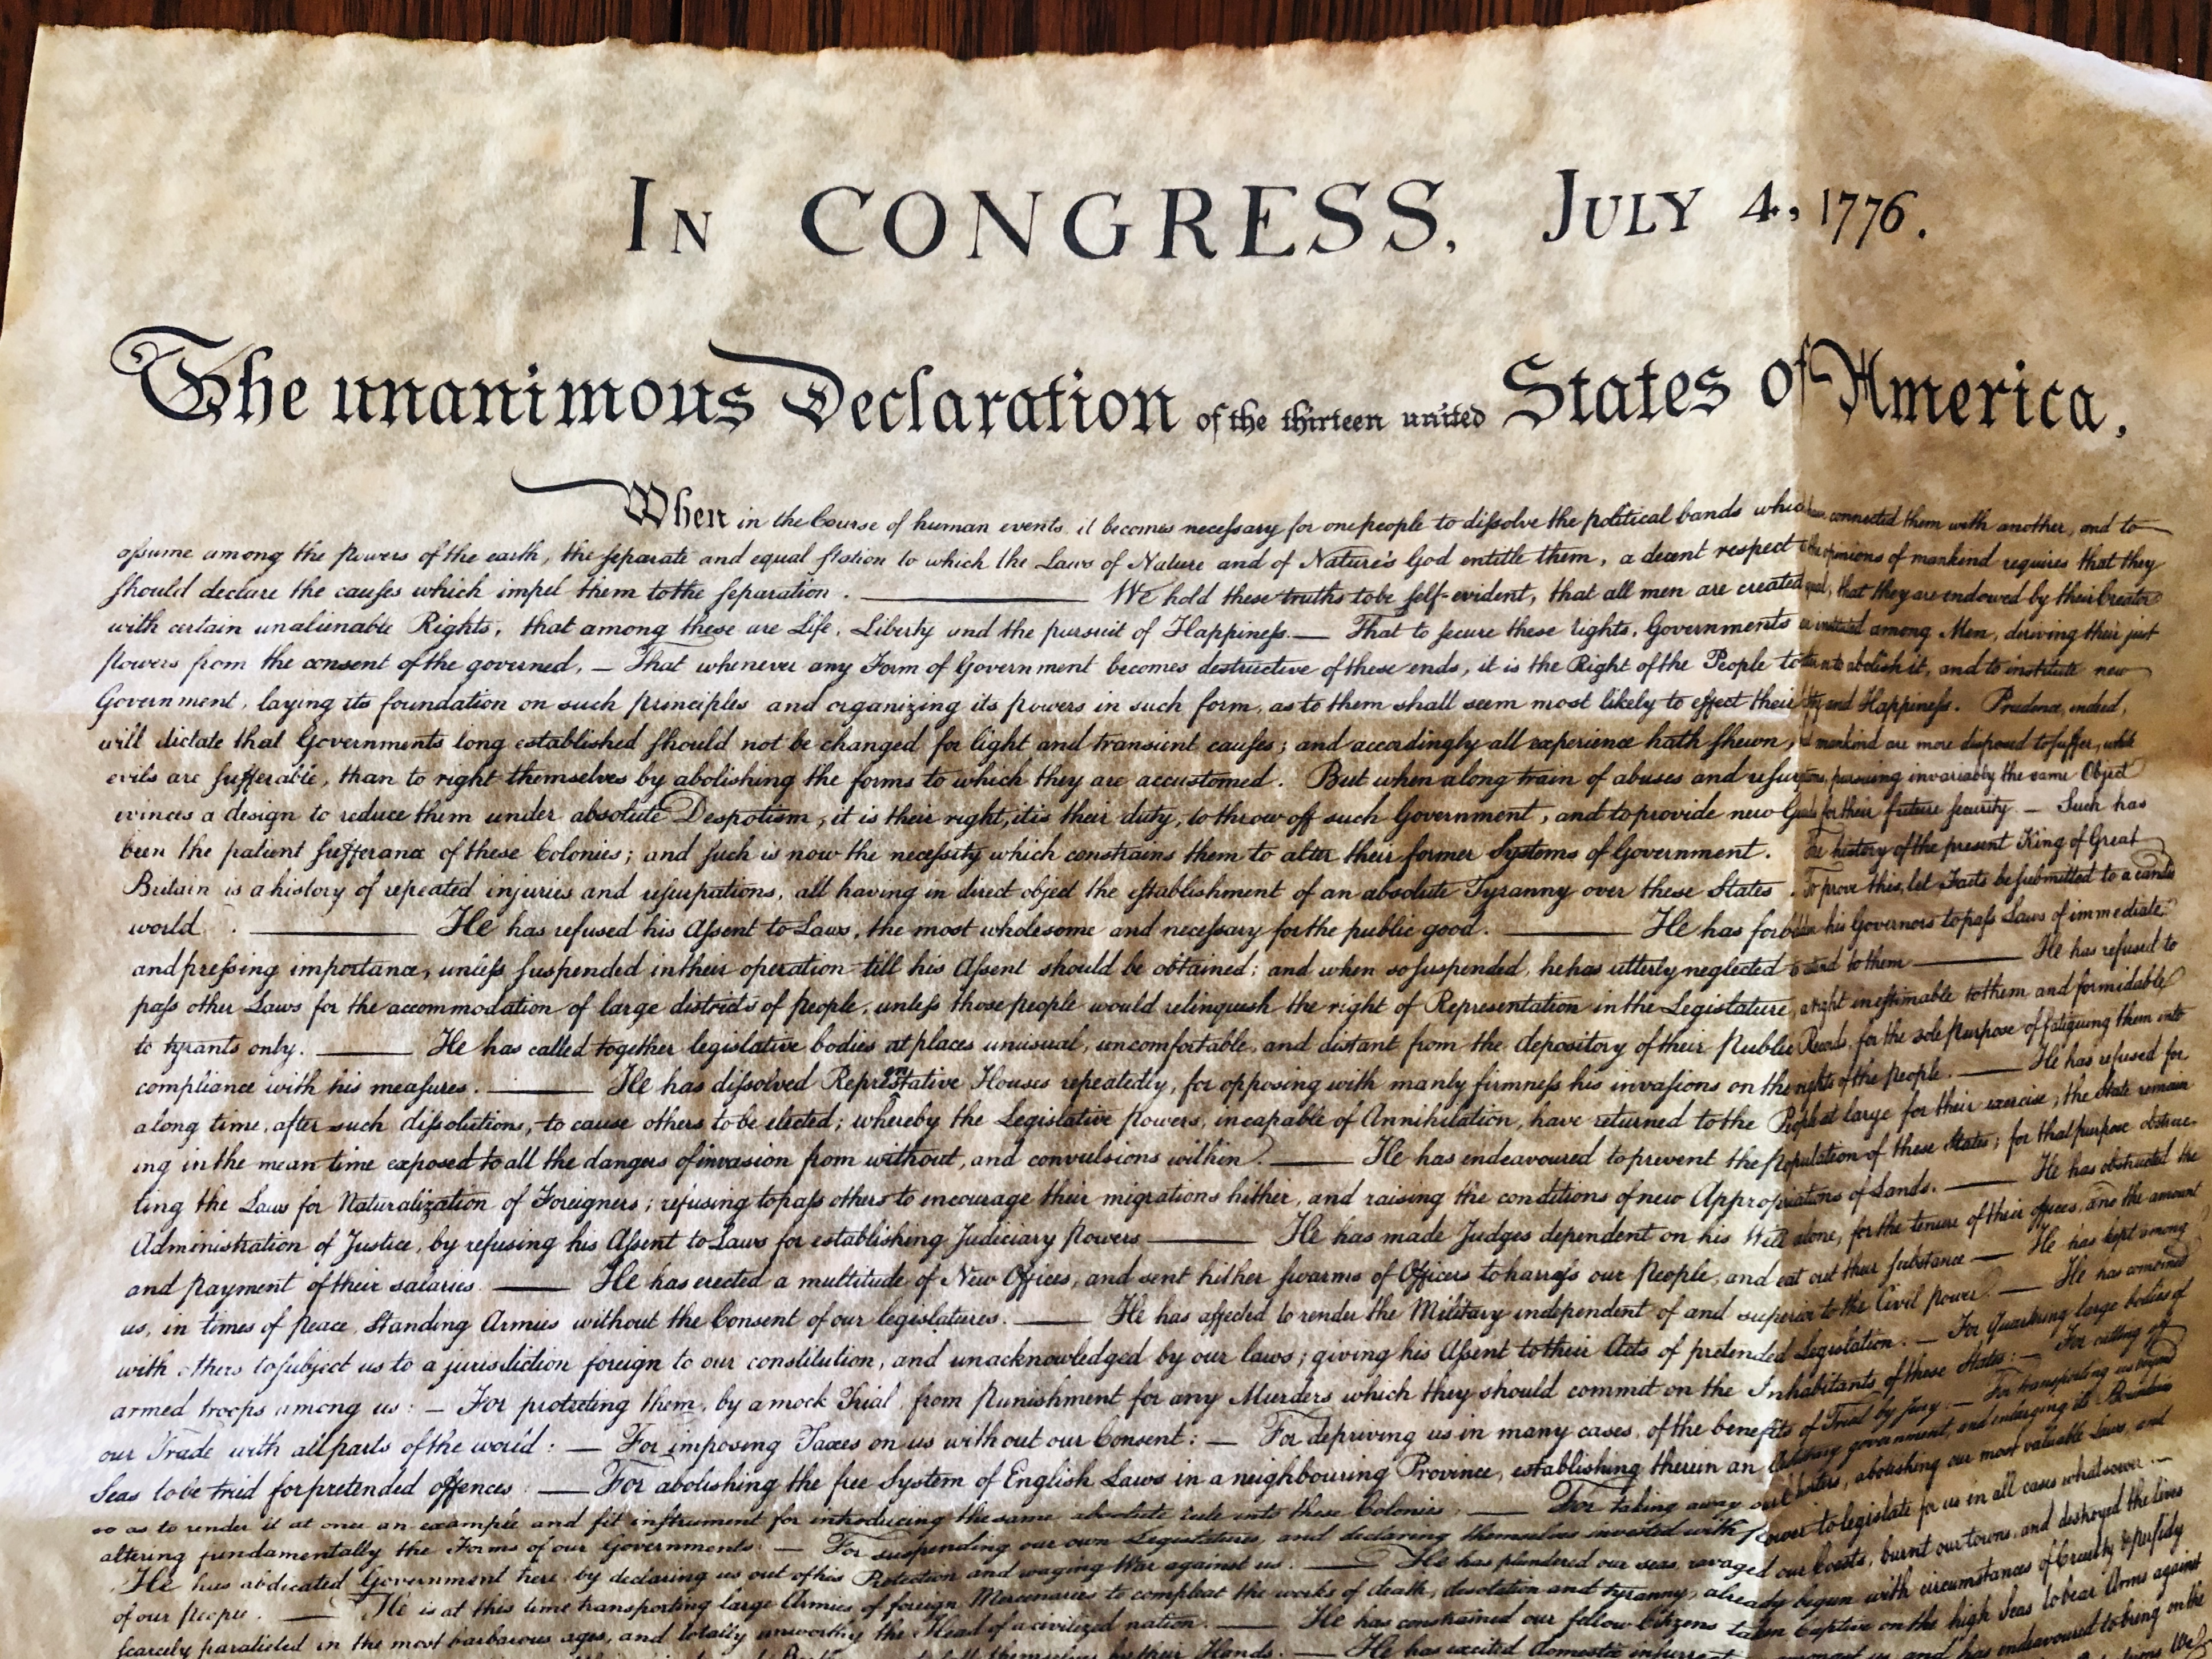 IN CONGRESS, JULY 4, 1776.
The unanimous Declaration of the thirteen united States of America,
When in the Course of human events, it becomes necessary for one people to dissolve the political bands which have connected them with another, and to
assume among the powers of the earth, the separate and equal station to which the Laws of Nature and of Nature's God entitle them, a decent respect to the opinions of mankind requires that they
should declare the causes which impel them to the separation. — We hold these truths to be self-evident, that all men are created equal, that they are endowed by their Creator
with certain unalienable Rights, that among these are Life, Liberty and the pursuit of Happiness. — That to secure these rights, Governments are instituted among Men, deriving their just
powers from the consent of the governed, — That whenever any Form of Government becomes destructive of these ends, it is the Right of the People to alter or to abolish it, and to institute new
Government, laying its foundation on such principles and organizing its powers in such form, as to them shall seem most likely to effect their Safety and Happiness. Prudence, indeed,
will dictate that Governments long established should not be changed for light and transient causes; and accordingly all experience hath shewn, that mankind are more disposed to suffer, while
evils are sufferable, than to right themselves by abolishing the forms to which they are accustomed. But when a long train of abuses and usurpations, pursuing invariably the same Object
evinces a design to reduce them under absolute Despotism, it is their right, it is their duty, to throw off such Government, and to provide new Guards for their future security. — Such has
been the patient sufferance of these Colonies; and such is now the necessity which constrains them to alter their former Systems of Government. The history of the present King of Great
Britain is a history of repeated injuries and usurpations, all having in direct object the establishment of an absolute Tyranny over these States. To prove this, let Facts be submitted to a candid
world. — He has refused his Assent to Laws, the most wholesome and necessary for the public good. — He has forbidden his Governors to pass Laws of immediate
and pressing importance, unless suspended in their operation till his Assent should be obtained; and when so suspended, he has utterly neglected to attend to them — He has refused to
pass other Laws for the accommodation of large districts of people, unless those people would relinquish the right of Representation in the Legislature, a right inestimable to them and formidable
to tyrants only. — He has called together legislative bodies at places unusual, uncomfortable, and distant from the depository of their Public Records, for the sole purpose of fatiguing them into
compliance with his measures. — He has dissolved Representative Houses repeatedly, for opposing with manly firmness his invasions on the rights of the people. — He has refused for
a long time, after such dissolutions, to cause others to be elected; whereby the Legislative powers, incapable of Annihilation, have returned to the People at large for their exercise; the State remain
ing in the mean time exposed to all the dangers of invasion from without, and convulsions within. — He has endeavoured to prevent the population of these States; for that purpose obstruc-
ting the Laws for Naturalization of Foreigners; refusing to pass others to encourage their migrations hither, and raising the conditions of new Appropriations of Lands. — He has obstructed the
Administration of Justice, by refusing his Assent to Laws for establishing Judiciary powers — He has made Judges dependent on his Will alone, for the tenure of their offices, and the amount
and payment of their salaries. — He has erected a multitude of New Offices, and sent hither swarms of Officers to harrass our people, and eat out their substance — He has kept among
us, in times of peace, Standing Armies without the Consent of our legislatures. — He has affected to render the Military independent of and superior to the Civil power. — He has combined
with others to subject us to a jurisdiction foreign to our constitution, and unacknowledged by our laws; giving his Assent to their Acts of pretended Legislation: — For Quartering large bodies of
armed troops among us: — For protecting them, by a mock Trial, from punishment for any Murders which they should commit on the Inhabitants of these States: — For cutting off
our Trade with all parts of the world: — For imposing Taxes on us without our Consent: — For depriving us in many cases, of the benefits of Trial by Jury: — For transporting us beyond
Seas to be tried for pretended offences: — For abolishing the free System of English Laws in a neighbouring Province, establishing therein an Arbitrary government, and enlarging its Boundaries
so as to render it at once an example and fit instrument for introducing the same absolute rule into these Colonies: — For taking away our Charters, abolishing our most valuable Laws, and
altering fundamentally the Forms of our Governments: — For suspending our own Legislatures, and declaring themselves invested with power to legislate for us in all cases whatsoever. —
He has abdicated Government here, by declaring us out of his Protection and waging War against us. — He has plundered our seas, ravaged our Coasts, burnt our towns, and destroyed the lives
of our people. — He is at this time transporting large Armies of foreign Mercenaries to compleat the works of death, desolation and tyranny, already begun with circumstances of Cruelty & perfidy
scarcely paralleled in the most barbarous ages, and totally unworthy the Head of a civilized nation. — He has constrained our fellow Citizens taken Captive on the high Seas to bear Arms against
themselves by their Hands. — He has excited domestic and has endeavoured to bring on the